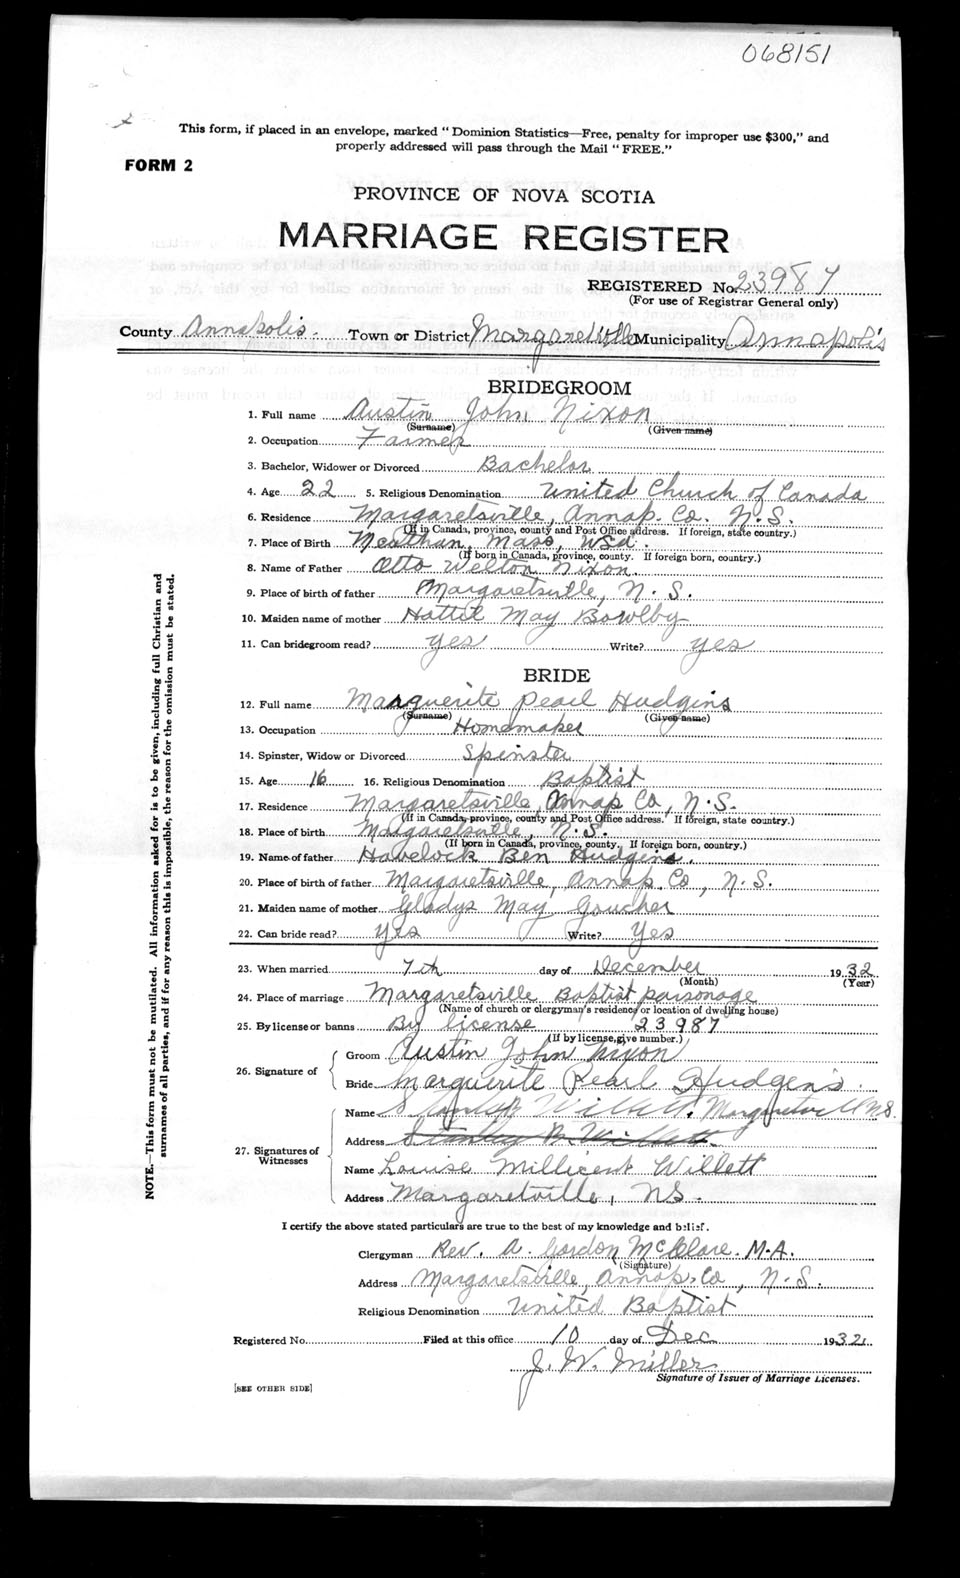 068151
This form, if placed in an envelope, marked "Dominion Statistics—Free, penalty for improper use $300," and
properly addressed will pass through the Mail "FREE."
FORM 2
PROVINCE OF NOVA SCOTIA
MARRIAGE REGISTER
REGISTERED No. 23987
(For use of Registrar General only)
County Annapolis. Town or District Margaretville Municipality Annapolis
BRIDEGROOM
1. Full name Austin John Nixon
(Surname) (Given name)
2. Occupation Farmer
3. Bachelor, Widower or Divorced Bachelor
4. Age 22 5. Religious Denomination United Church of Canada
6. Residence Margaretsville, Annap. Co. N.S.
(If in Canada, province, county and Post Office address. If foreign, state country.)
7. Place of Birth Meathan, Mass, USA.
(If born in Canada, province, county. If foreign born, country.)
8. Name of Father Otto Welton Nixon.
9. Place of birth of father Margaretsville, N.S.
10. Maiden name of mother Hattie May Bowlby
11. Can bridegroom read? yes Write? yes
BRIDE
12. Full name Marguerite Pearl Hudgins
(Surname) (Given name)
13. Occupation Homemaker
14. Spinster, Widow or Divorced Spinster
15. Age 16 16. Religious Denomination Baptist
17. Residence Margaretsville, Annap Co, N.S.
(If in Canada, province, county and Post Office address. If foreign, state country.)
18. Place of birth Margaretsville, N.S.
(If born in Canada, province, county. If foreign born, country.)
19. Name of father Havelock Ben Hudgins.
20. Place of birth of father Margaretsville, Annap. Co, N.S.
21. Maiden name of mother Gladys May Goucher
22. Can bride read? yes Write? Yes
23. When married 7th day of December 1932
(Month) (Year)
24. Place of marriage Margaretsville Baptist parsonage
(Name of church or clergyman's residence or location of dwelling house)
25. By license or banns By license 23987
(If by license, give number.)
26. Signature of
Groom Austin John Nixon
Bride Marguerite Pearl Hudgens.
27. Signatures of Witnesses
Name Stanley B Willett. Margaretville N.S.
Address Stanley B. Willett
Name Louise Millicent Willett
Address Margaretville, NS.
I certify the above stated particulars are true to the best of my knowledge and belief.
Clergyman Rev. A. Gordon McClare. M.A.
(Signature)
Address Margaretsville, Annap. Co, N.S.
Religious Denomination United Baptist
Registered No. Filed at this office 10 day of Dec 1932
J. W. Miller
Signature of Issuer of Marriage Licenses.
[SEE OTHER SIDE]
NOTE.—This form must not be mutilated. All information asked for is to be given, including full Christian and
surnames of all parties, and if for any reason this is impossible, the reason for the omission must be stated.